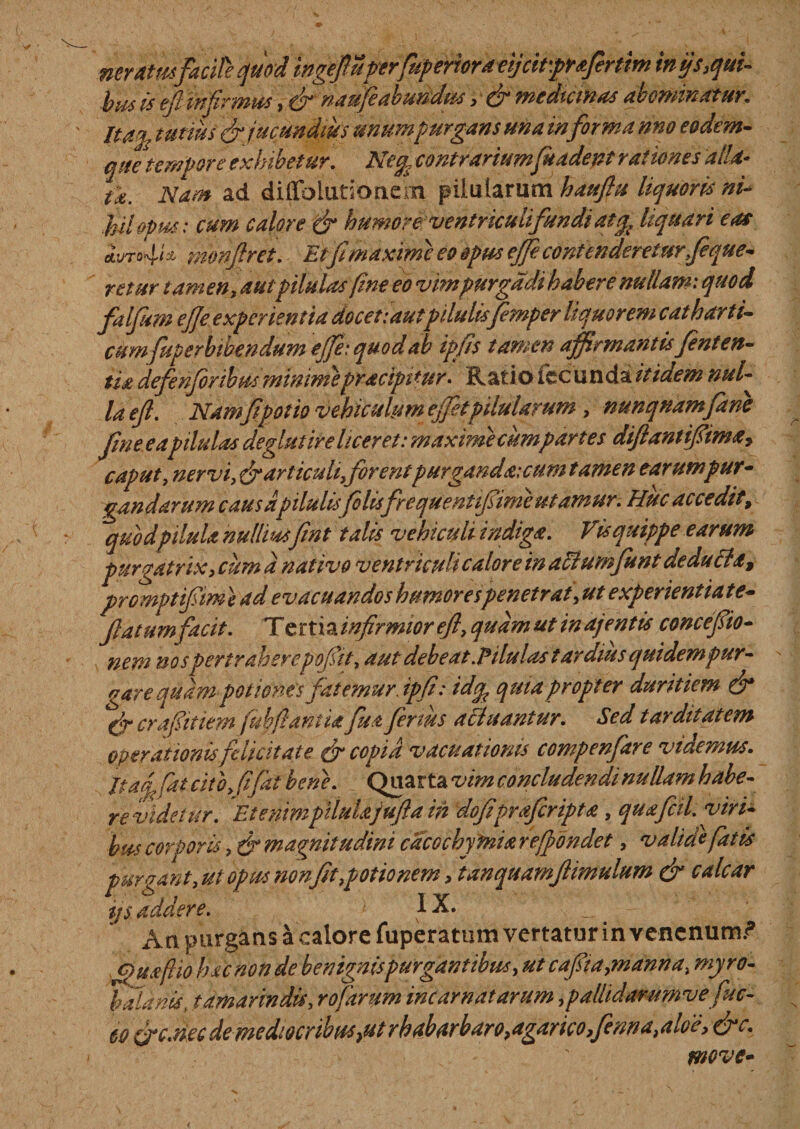 neratus facile quod ingestũ per superiora eijcit: præsertim in ijs, qui-
bus is est infirmus, & nauseabundus, & medicinas abominatur.
Itaq; tutiùs & jucundiùs unum purgans una in forma uno eodem-
que tempore exhibetur. Neq; contrarium suadent rationes alla-
tæ. Nam ad dissolutionem pilularum haustu liquoris ni-
hil opus: cum calore & humore ventriculi fundi atq; liquari eas
ἀυτοψία monstret. Et si maximè eo opus esse contenderetur, seque-
retur tamen, aut pilulas sine eo vim purgãdi habere nullam: quod
falsum esse experientia docet: aut pilulis semper liquorem catharti-
cum superbibendum esse: quod ab ipsis tamen affirmantis senten-
tiæ defensoribus minimè præcipitur. Ratio secunda itidem nul-
la est. Nam si potio vehiculum esset pilularum, nunqnam sanè
sine ea pilulas deglutire liceret: maximè cùm partes distantissimæ,
caput, nervi, & articuli, forent purgandæ: cum tamen earum pur-
gandarum causâ pilulis solis frequentissimè utamur. Hùc accedit,
quòd pilulæ nullius sint talis vehiculi indigæ. Vis quippe earum
purgatrix, cùm à nativo ventriculi calore in actum sunt deductæ,
promptissimè ad evacuandos humores penetrat, ut experientia te-
statum facit. Tertia infirmior est, quàm ut in ajentis concessio-
nem nos pertrahere possit, aut debeat. Pilulas tardiùs quidem pur-
gare quàm potiones fatemur ipsi: idq; quia propter duritiem &
& crassitiem substantiæ suæ seriùs actuantur. Sed tarditatem
operationis felicitate & copiâ vacuationis compensare videmus.
Itaq; sat citò, si sat bene. Quarta vim concludendi nullam habe-
re videtur. Etenim pilulæ justa in dosi præscriptæ, quæ scil. viri-
bus corporis, & magnitudini cacochymiæ respondet, validè satis
purgant, ut opus non sit, potionem, tanquam stimulum & calcar
ijs addere. IX.
An purgans à calore superatum vertatur in venenum?
Quæstio hæc non de benignis purgantibus, ut cassia, manna, myro-
balanis, tamarindis, rosarum incarnatarum, pallidarumve suc-
co &c. nec de mediocribus, ut rhabarbaro, agarico, senna, aloë, &c.
move-